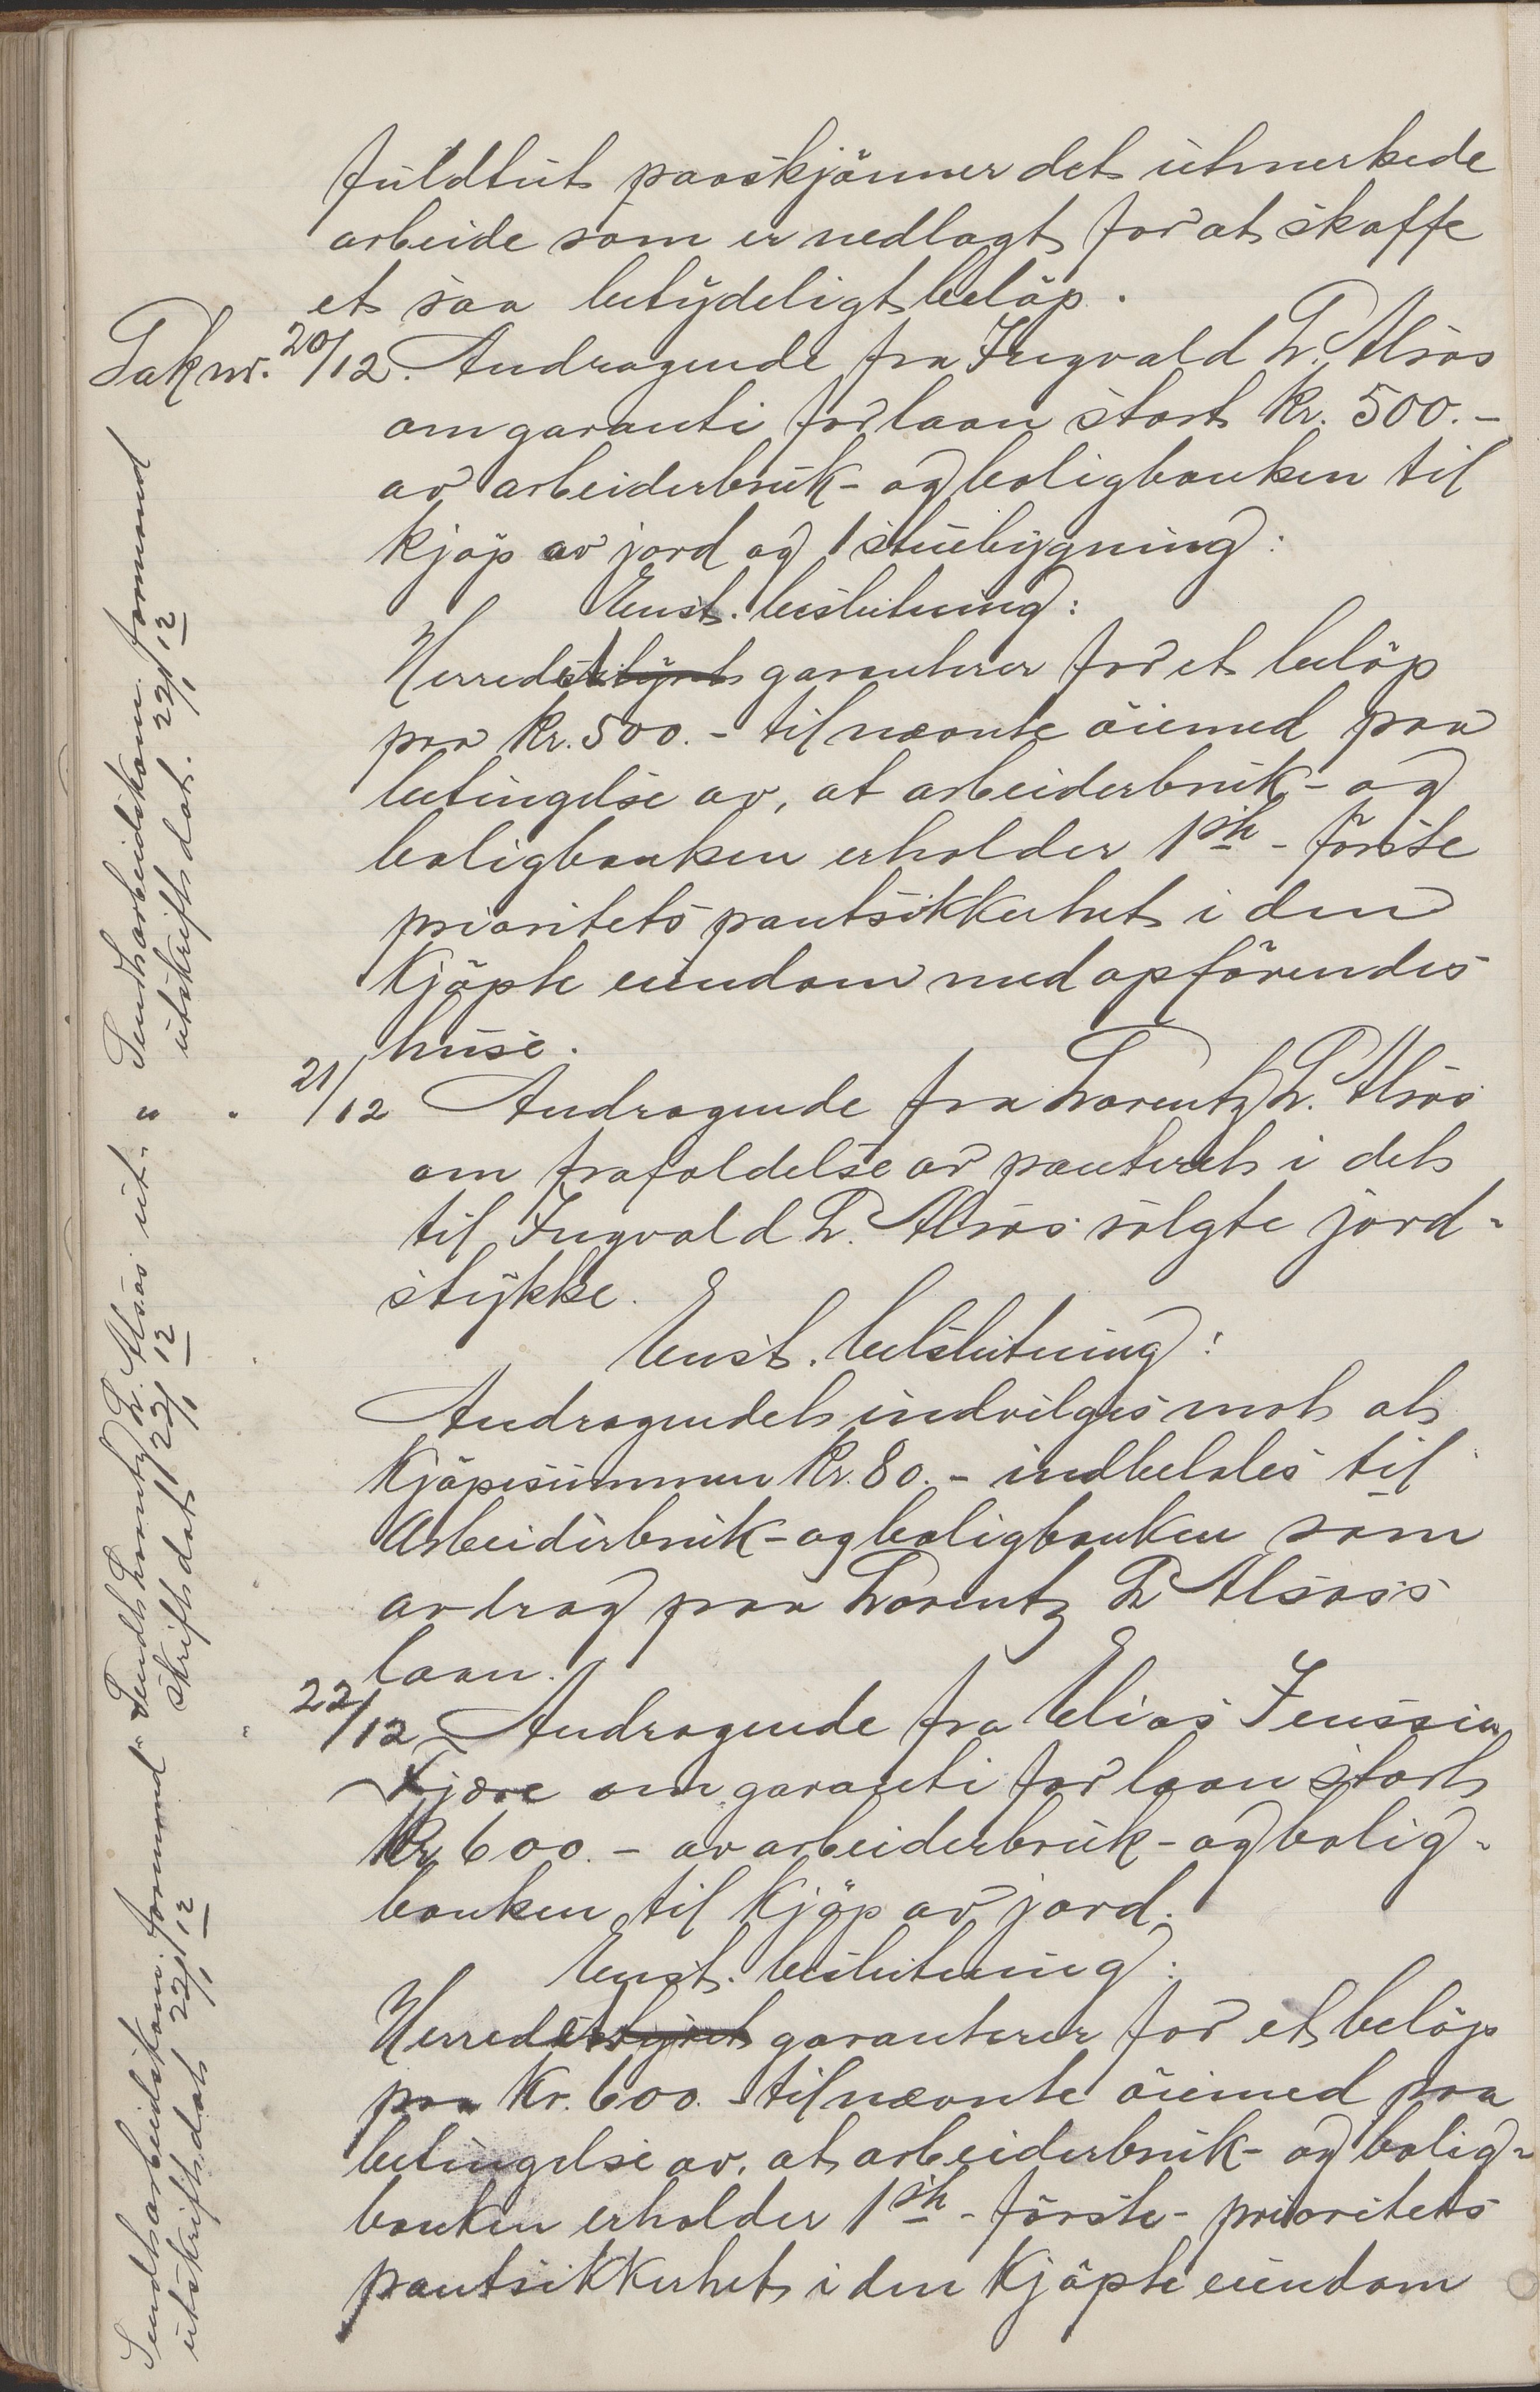 fuldtut paaskjönner det utmerkede
arbeide som er nedlagt for at skaffe
et saa betydeligt belöp.
Sak nr. 20/12. Andragende fra Ingvald L. Alsos
om garanti for laan stort kr. 500.-
av arbeiderbruk- og boligbanken til
kjöp av jord og 1 stuebygning:
Enst. beslutning:
Herredet styret garanterer for et belöp
paa kr. 500.- til nævnte öiemed paa
betingelse av, at arbeiderbruk- og
boligbanken erholder 1ste - förste
prioritets pantsikkerhet i den
kjöpte eiendom med opförendes
huse.
" " 21/12 Andragende fra Lorentz L. Alsos
om frafaldelse av panteret i det
til Ingvald L. Alsos solgte jord-
stykke.
Enst. beslutning:
Andragendet indvilges mot at
kjöpesummen kr. 80.- indbetales til
Arbeiderbruk- og boligbanken som
avdrag paa Lorentz L Alsos's
laan.
" " 22/12 Andragende fra Elias Jenssen
Kjære om garanti for laan stort
kr 600.- av arbeiderbruk- og bolig-
banken til kjöp av jord.
Enst. beslutning:
Herredet styret garanterer for et belöp
paa kr. 600.- til nævnte öiemed paa
betingelse av, at arbeiderbruk- og bolig-
banken erholder 1ste - förste - prioritets
pantsikkerhet i den kjöpte eiendom
Sendt arbeidskom. formand
utskrift dat. 22/1 12
Sendt Lorentz L. Alsos ut-
skrift dat 22/1 12
Sendt arbeidskom. formand
utskrift dat 22/1 12